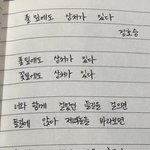 풀잎에도 상처가 있다
정호승
풀잎에도 상처가 있다
꽃잎에도 상처가 있다
너와 함께 걸었던 들길을 걸으면
들길에 앉아 저녁놀을 바라보면